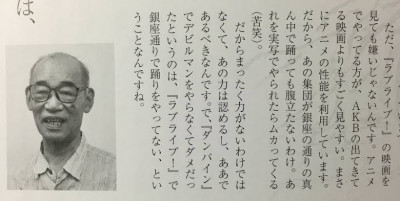 ただ、『ラブライブ！』の映画を
見ても嫌いじゃないんです。アニメ
でやってる方が、AKBの出てきて
る映画よりもすごく見やすい。まさ
にアニメの性能を利用しています。
だから、あの集団が銀座の通りの真
ん中で踊っても腹立たないわけ。あ
れを実写でやられたらムカってくる
（苦笑）。
だからまったく力がないわけでは
なくて、あの力は認めるし、ああで
あるべきなんです。で、『ダンバイン』
でデビルマンをやらなくてダメだっ
たというのは、『ラブライブ！』で
銀座通りで踊りをやってない、とい
うことなんですね。
は、